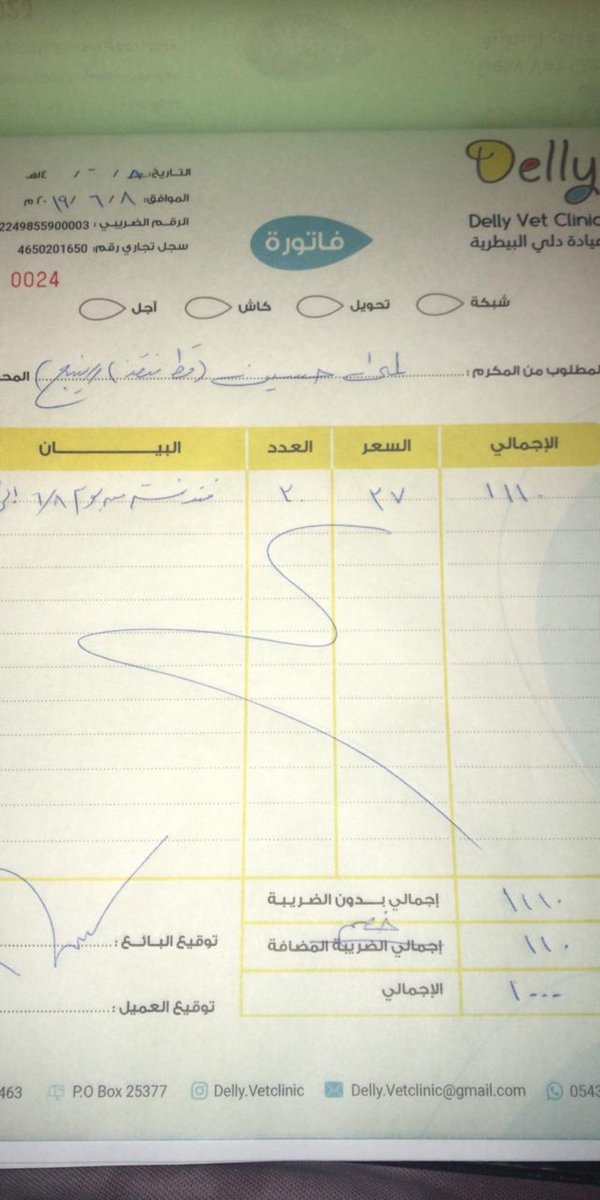 Delly
Delly Vet Clinic
عيادة دلي البيطرية
فاتورة
التاريخ: ٨ / ٦ / ١٤هـ
الموافق: ٨ / ٦ / ٢٠١٩م
الرقم الضريبي: 2249855900003
سجل تجاري رقم: 4650201650
0024
شبكة تحويل كاش آجل
المطلوب من المكرم: حسين (قط منقذ)
الإجمالي السعر العدد البيــــــــان
١١١٠ ٣٧ ٣٠ يوم ٦/٨
إجمالي بـدون الضريبة ١١١٠
خصم
إجمالي الضريبة المضافة ١١٠
الإجمالي ١٠٠٠
توقيع البائع:
توقيع العميل:
463 P.O Box 25377 Delly.Vetclinic Delly.Vetclinic@gmail.com 0543